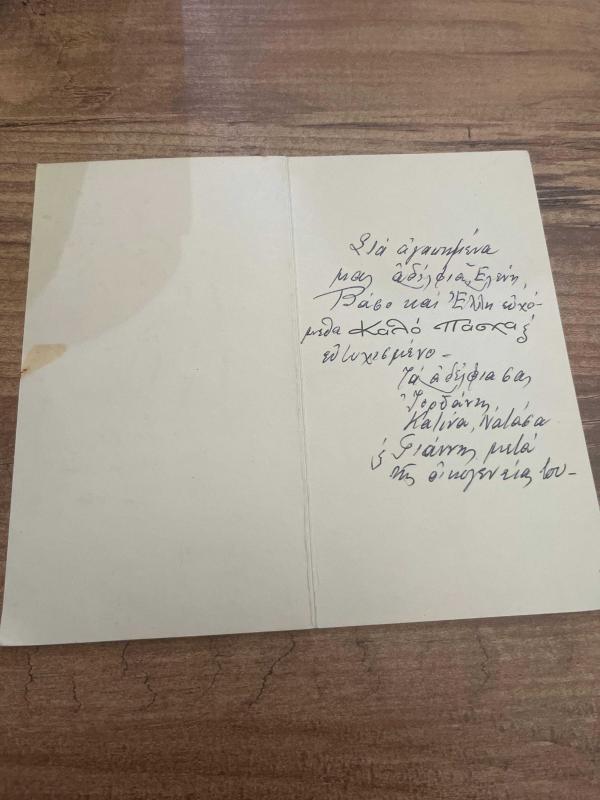 Στά ἀγαπημένα
μας ἀδέλφια Ἑλένη,
Βάσο καί Ἕλλη εὐχό-
μεθα Καλό Πάσχα &
εὐτυχισμένο -
Τά ἀδέλφια σας
Ἰορδάνης
Κατίνα, Νατάσα
& Γιάννης μετά
τῆς οἰκογενείας του -